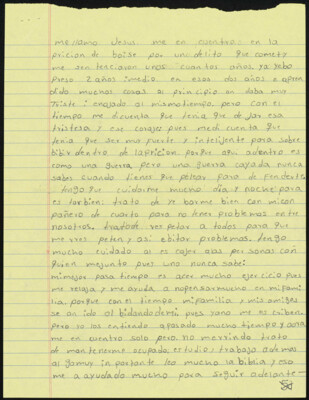 me llamo Jesus me en cuentro: en la
pricion de boise por un delito que cometi
me sentenciaron unos cuantos años, ya yebo
Preso 2 años imedio en esos dos años e apren
dido muchas cosas al principio on daba muy
Triste i enojado al mismo tiempo, pero con el
tiempo me di cuenta que tenia que dejar esa
tristesa y ese corajes pues me di cuenta que
tenia que ser mas fuerte y intelijente para sobre
bibir dentro de la pricion porque aqui adentro es
como una guerra, pero una guerra cayada nunca
sabes cuando tienes que peliar para defenderte
tengo que cuidarme mucho dia y noche para
es tar bien: trato de yebarme bien con mi con
pañero de cuarto para no tener problemas entre
nosotros. trato de res petar a todos para que
me res peten y asi ebitar problemas. tengo
mucho cuidado al es cojer alas personas con
quien me junto pues uno nunca sabe:
mi mejor pasa tiempo es acer mucho ejercicio pues
me relaja y me ayuda a no pensar mucho en mi fami
lia, porque con el tiempo mi familia y mis amigos
se an ido olbidandode mi pues ya no me es criben.
pero yo los entiendo apasado mucho tiempo y aora
me en cuentro solo pero no me rrindo trato
de mantenerme ocupado, estudio, trabajo ademas
al go muy in portante leo mucho la biblia y eso
me a ayudado mucho para seguir adelante